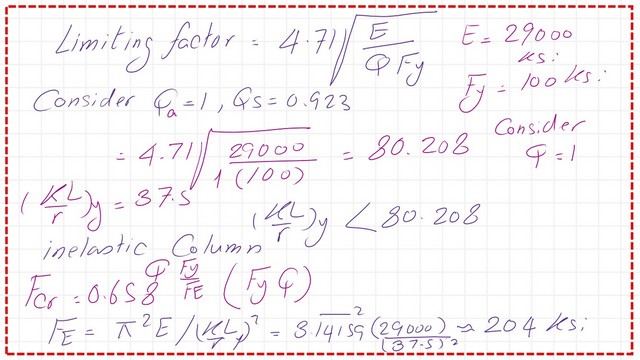 Limiting factor = 4.71 √(E / Q Fy)
E = 29000 ksi
Fy = 100 ksi
Consider Qa = 1, Qs = 0.923
= 4.71 √(29000 / 1(100)) = 80.208
Consider Q = 1
(KL/r)y = 37.5
(KL/r)y < 80.208
inelastic Column
Fcr = 0.658^(Q Fy/FE) (Fy Q)
FE = π²E/(KL/r)² = 3.14159² (29000)/(37.5)² ≈ 204 ksi